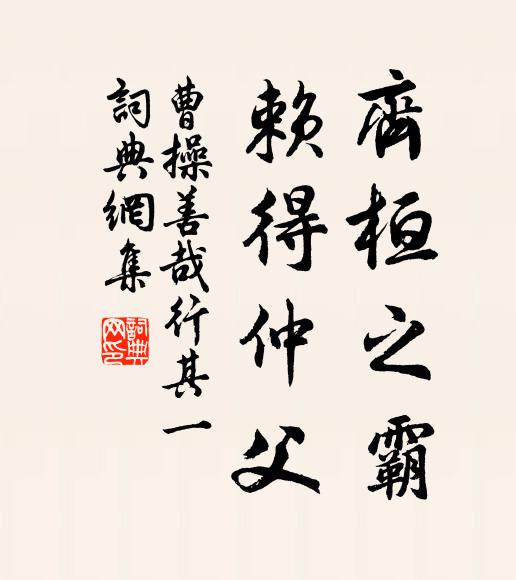 齊桓之霸
賴得仲父
曹操善哉行其一
詞典網集
詞典网印